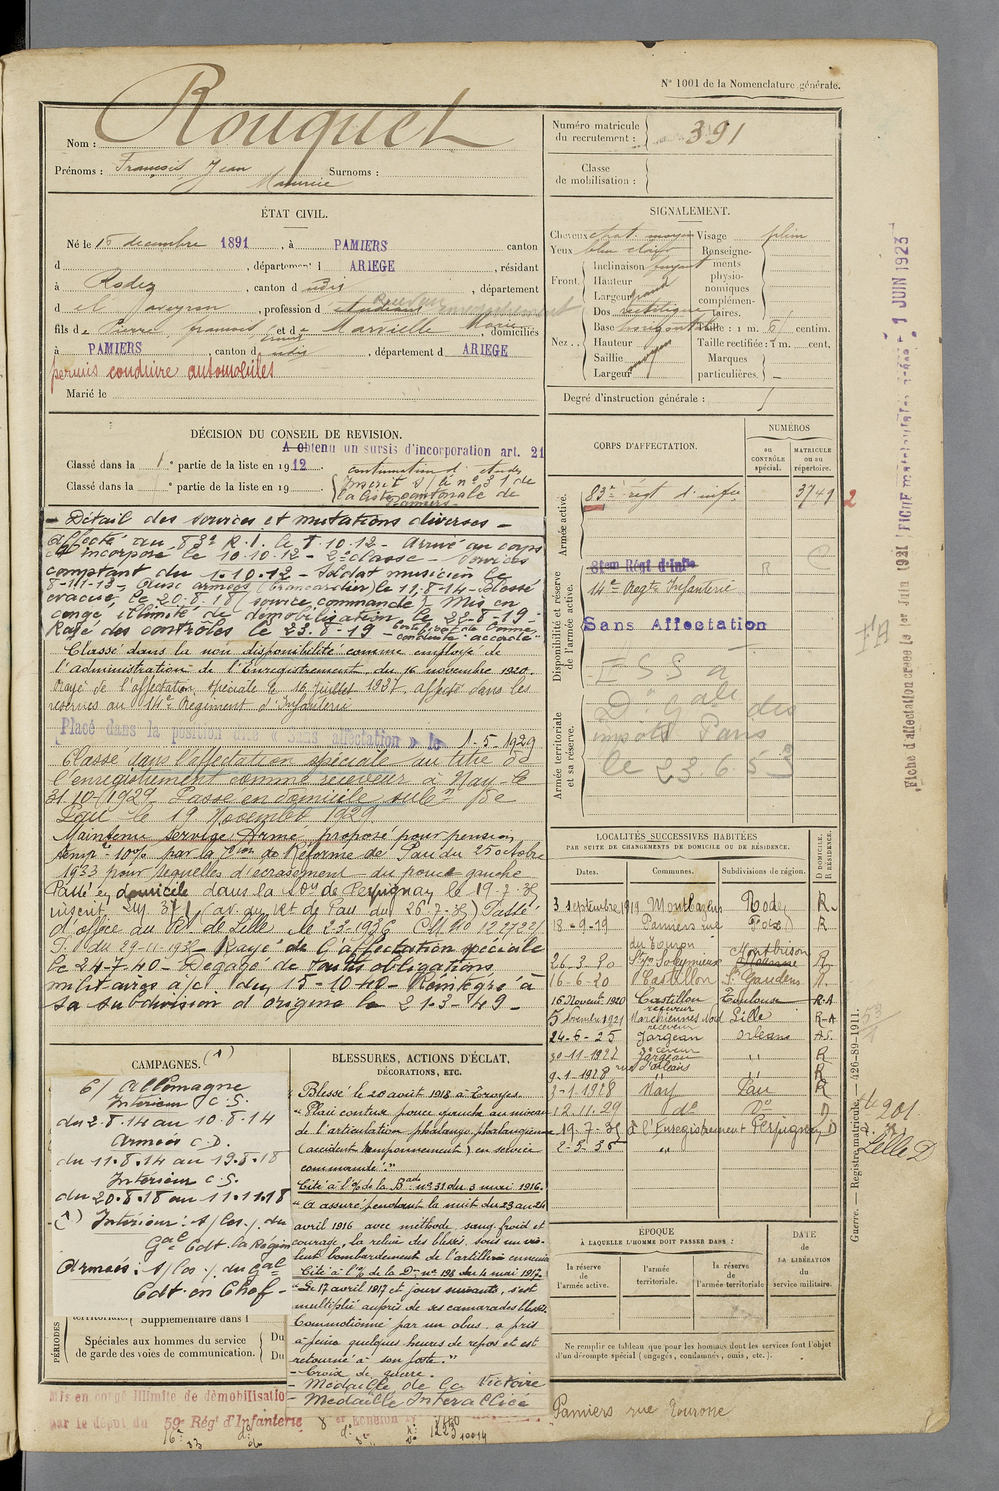 N° 1001 de la Nomenclature générale.
Nom : Rouquet
Prénoms : François Jean Surnoms :
Maurice
ÉTAT CIVIL.
Né le 16 decembre 1891, à PAMIERS canton
d , département d ARIEGE , résidant
à Rodez , canton d udis , département
d el Aveyron , profession d étudiant
fils de Pierre françois et de Marcielle Marie domiciliés
à PAMIERS canton d udis , département d ARIEGE
permis conduire automobiles
Marié le
DÉCISION DU CONSEIL DE REVISION.
A obtenu un sursis d'incorporation art. 21
Classé dans la 1e partie de la liste en 1912. continuation d' etudes
Classé dans la e partie de la liste en 19 Inscrit s/ le n° 31 de
la liste cantonale de
Pamiers
Détail des services et mutations diverses
affecté au 83e R.I. le 8.10.12 - Arrivé au corps
et incorporé le 10.10.12 - 2e classe - Services
comptant du 1.10.12 - Soldat musicien le
8-11-13 - aux armées (brancardier) le 11.8.14 - Blessé
évacué le 20.8.18 (service commandé) Mis en
congé illimité de démobilisation le 22-8-19 -
Rayé des contrôles le 23.8-19 - Certificat de bonne
conduite "accordé"
Classé dans la non disponibilité comme employé de
l'administration de l'Enregistrement du 16 novembre 1920.
Rayé de l'affectation spéciale le 16 juillet 1927, affecté dans les
réserves au 14e Régiment d'Infanterie
Placé dans la position dite « Sans affectation » le 1-5-1929
Classé dans l'affectation spéciale au titre de
l'enregistrement comme receveur à Nay - le
31.10.1929 Passe en domicile subon de
Pau - le 19 Novembre 1929
Maintenu service Armé proposé pour pension
temp re 10% par la Con de Réforme de Pau du 25 octobre
1933 pour séquelles d'écrasement du pouce gauche
Passé en domicile dans la Son de Perpignan le 19.7.35
inscrit au 371 (av. du Rt de Pau du 26-7-35) Passé
d'office au Rt de Lille le 2.3.1936 CM no 12272/
du 29-11-1938 - Rayé de l'affectation spéciale
le 24-7-40 - Dégagé de toutes obligations
militaires à/c du 15-10-40 - Réintégré à
sa subdivision d'origine le 21-3-49 -
CAMPAGNES. (1)
C/ Allemagne
Intérieur C.S.
du 2.8.14 au 10.8.14
Armées C.D.
du 11.8.14 au 19.8.18
Intérieur C.S.
du 20.8.18 au 11.11.18
(1) Intérieur : s/ les % du
Gal Cdt. la Région
Armées : s/ les % du Gal
Cdt en Chef -
Supplémentaire dans l
PÉRIODES
Spéciales aux hommes du service
de garde des voies de communication.
Du
Du
BLESSURES, ACTIONS D'ÉCLAT,
DÉCORATIONS, ETC.
Blessé le 20 août 1918 à Troyes.
"Plaie contuse pouce gauche au niveau
de l'articulation phalango phalangienne
(accident tamponnement) en service
commandé."
Cité à l'% de la Bade n° 31 du 3 mai 1916.
"A assuré pendant la nuit du 23 au 24
avril 1916 avec méthode, sang froid et
courage, la relève des blessés sous un vio-
lent bombardement de l'artillerie ennemie
Cité à l'% de la Don n° 198 du 4 mai 1917.
"Le 17 avril 1917 et jours suivants, s'est
multiplié auprès de ses camarades blessés.
Commotionné par un obus, a pris
à peine quelques heures de repos et est
retourné à son poste."
- Croix de guerre.
- Médaille de la Victoire
- Médaille Interalliée
Mis en congé illimité de démobilisation
par le dépôt du 59e Régt d'Infanterie
Numéro matricule
du recrutement : 391
Classe
de mobilisation :
SIGNALEMENT.
Cheveux chat. moyen
Yeux bleu clair
Front. Inclinaison fuyant
Hauteur
Largeur grand
Nez. Dos rectiligne
Base horizontale
Hauteur
Saillie moyen
Largeur
Visage plein
Renseigne-
ments
physio-
nomiques
complémen-
taires.
Taille : 1 m. 61 centim.
Taille rectifiée : 1 m. cent.
Marques
particulières.
Degré d'instruction générale : 5
CORPS D'AFFECTATION.
NUMÉROS
au
CONTRÔLE
spécial.
MATRICULE
ou au
répertoire.
Armée active.
83e régt d'infie 3741 2
Disponibilité et réserve
de l'armée active.
81em Régt d'Infie R
14e Regt Infanterie
Sans Affectation
Armée territoriale
et sa réserve.
Don Gale des
impôts Paris
le 23.6.53
LOCALITÉS SUCCESSIVES HABITÉES
PAR SUITE DE CHANGEMENTS DE DOMICILE OU DE RÉSIDENCE.
Dates. Communes. Subdivisions de région. D DOMICILE. R RÉSIDENCE.
3 septembre 1919 Montbazens Rodez R.
18-9-19 Pamiers rue Foix R
26-3-20 Montbrison R
16-6-20 Castillon St Gaudens R.
16 Novembre 1920 Castillon Toulouse R-A
receveur
5 Novembre 1921 Marchiennes Nord Lille R-A
receveur
24-6-25 Jargeau Orleans A.S.
30-11-1927 Jargeau " R
9-1-1928 rue d'orléans " R
3-1-1928 Nay Pau R
12.11.29 do do D
19-7-35 à l'Enregistrement Perpignan D
2-3-36 " Lille D
ÉPOQUE
À LAQUELLE L'HOMME DOIT PASSER DANS :
la réserve
de l'armée active.
l'armée
territoriale.
la réserve
de l'armée territoriale
DATE
DE LA LIBÉRATION
du
service militaire.
Ne remplir ce tableau que pour les hommes dont les services font l'objet
d'un décompte spécial (engagés, condamnés, omis, etc.).
Pamiers rue
Guerre. — Registre matricule. — 426-89-1911.
Fiche d'affectation créée le 1er Juin 1921
1 JUIN 1923